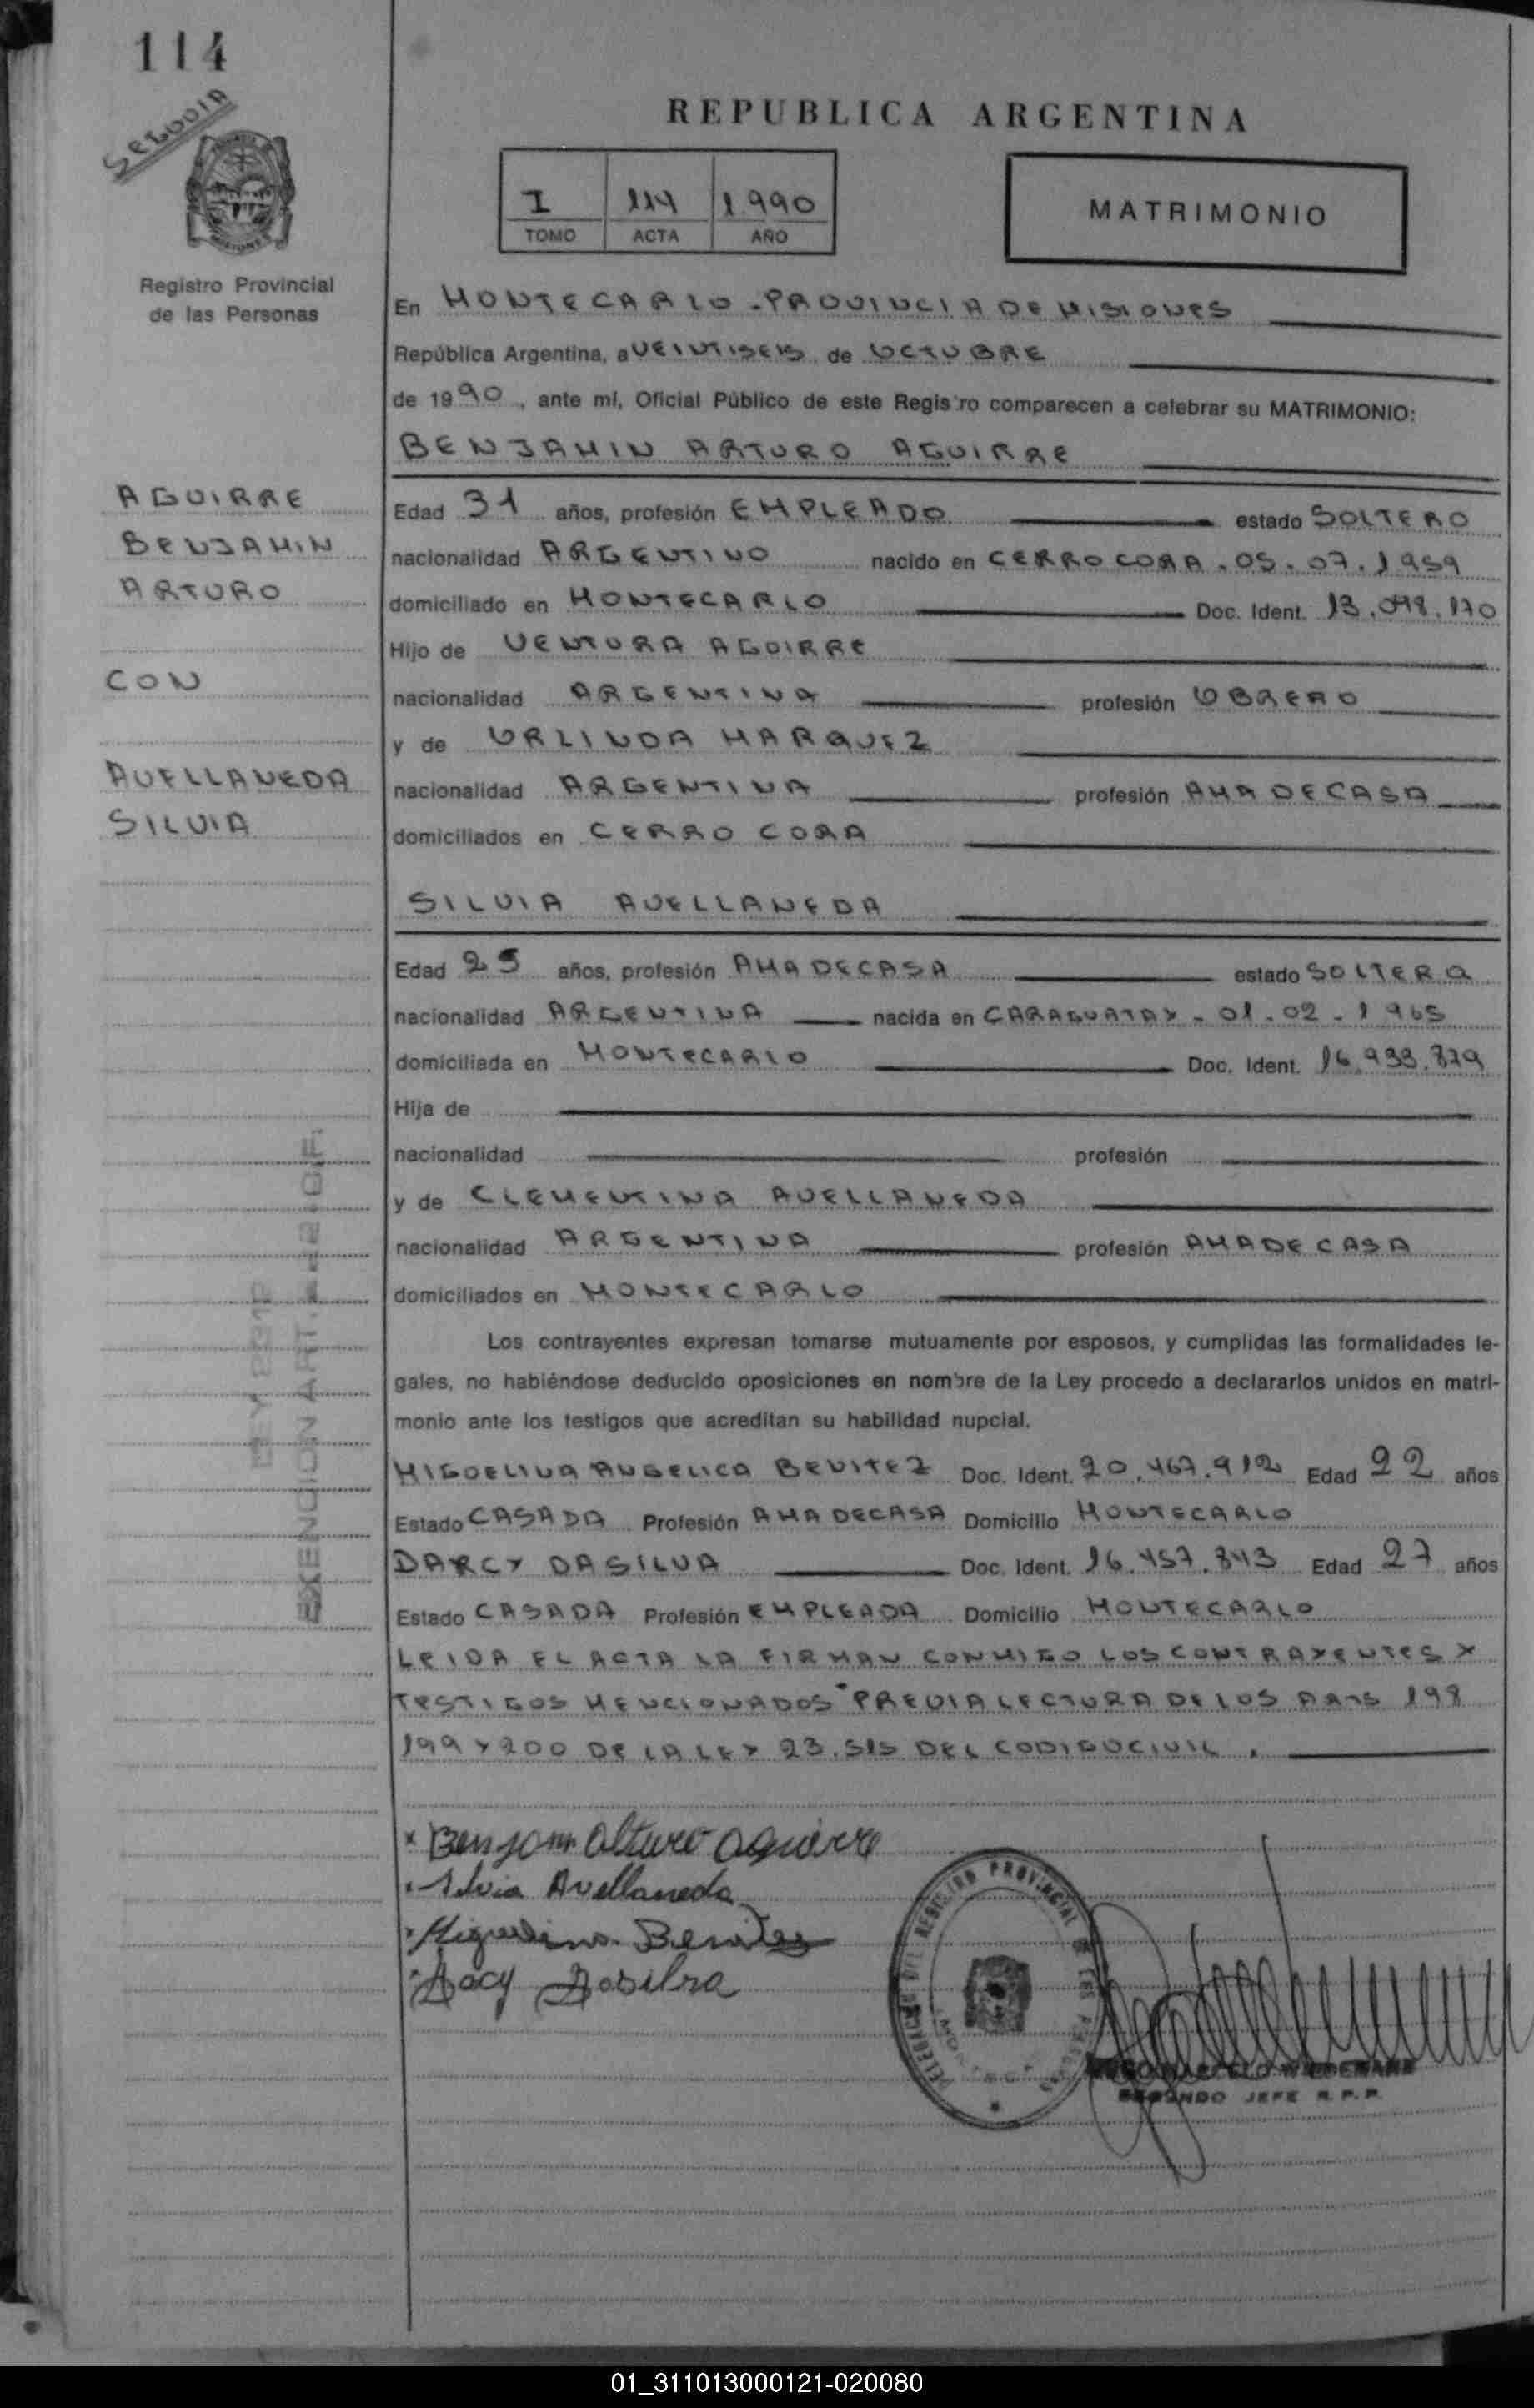 114
SEGOVIA
REPUBLICA ARGENTINA
I 114 1.990
TOMO ACTA AÑO
MATRIMONIO
Registro Provincial
de las Personas
En MONTECARLO - PROVINCIA DE MISIONES
República Argentina, a VEINTISEIS de OCTUBRE
de 1990, ante mí, Oficial Público de este Registro comparecen a celebrar su MATRIMONIO:
BENJAMIN ARTURO AGUIRRE
AGUIRRE
BENJAMIN
ARTURO
CON
AVELLANEDA
SILVIA
Edad 31 años, profesión EMPLEADO estado SOLTERO
nacionalidad ARGENTINO nacido en CERRO CORA. 05. 07. 1959
domiciliado en MONTECARLO Doc. Ident. 13.098.170
Hijo de VENTURA AGUIRRE
nacionalidad ARGENTINA profesión OBRERO
y de ORLINDA MARQUEZ
nacionalidad ARGENTINA profesión AMA DE CASA
domiciliados en CERRO CORA
SILVIA AVELLANEDA
Edad 25 años, profesión AMA DE CASA estado SOLTERA
nacionalidad ARGENTINA nacida en CARAGUATAY - 01 - 02 - 1965
domiciliada en MONTECARLO Doc. Ident. 16.933.879
Hija de
nacionalidad profesión
y de CLEMENTINA AVELLANEDA
nacionalidad ARGENTINA profesión AMA DE CASA
domiciliados en MONTECARLO
EXENCION ART.
LEY
Los contrayentes expresan tomarse mutuamente por esposos, y cumplidas las formalidades le-
gales, no habiéndose deducido oposiciones en nombre de la Ley procedo a declararlos unidos en matri-
monio ante los testigos que acreditan su habilidad nupcial.
MIGUELINA ANGELICA BENITEZ Doc. Ident. 20.467.912 Edad 22 años
Estado CASADA Profesión AMA DE CASA Domicilio MONTECARLO
DARCY DASILVA Doc. Ident. 16.457.843 Edad 27 años
Estado CASADA Profesión EMPLEADA Domicilio MONTECARLO
LEIDA EL ACTA LA FIRMAN CONMIGO LOS CONTRAYENTES Y
TESTIGOS MENCIONADOS "PREVIA LECTURA DE LOS ARTS 198
199 Y 200 DE LA LEY 23.515 DEL CODIGO CIVIL.
x Benjamin Alturo Aguirre
Silvia Avellaneda
Miguelina Benitez
Dacy Dasilva
DELEGACION DEL REGISTRO PROVINCIAL DE LAS PERSONAS
SEGUNDO JEFE R.P.P.
01_311013000121-020080